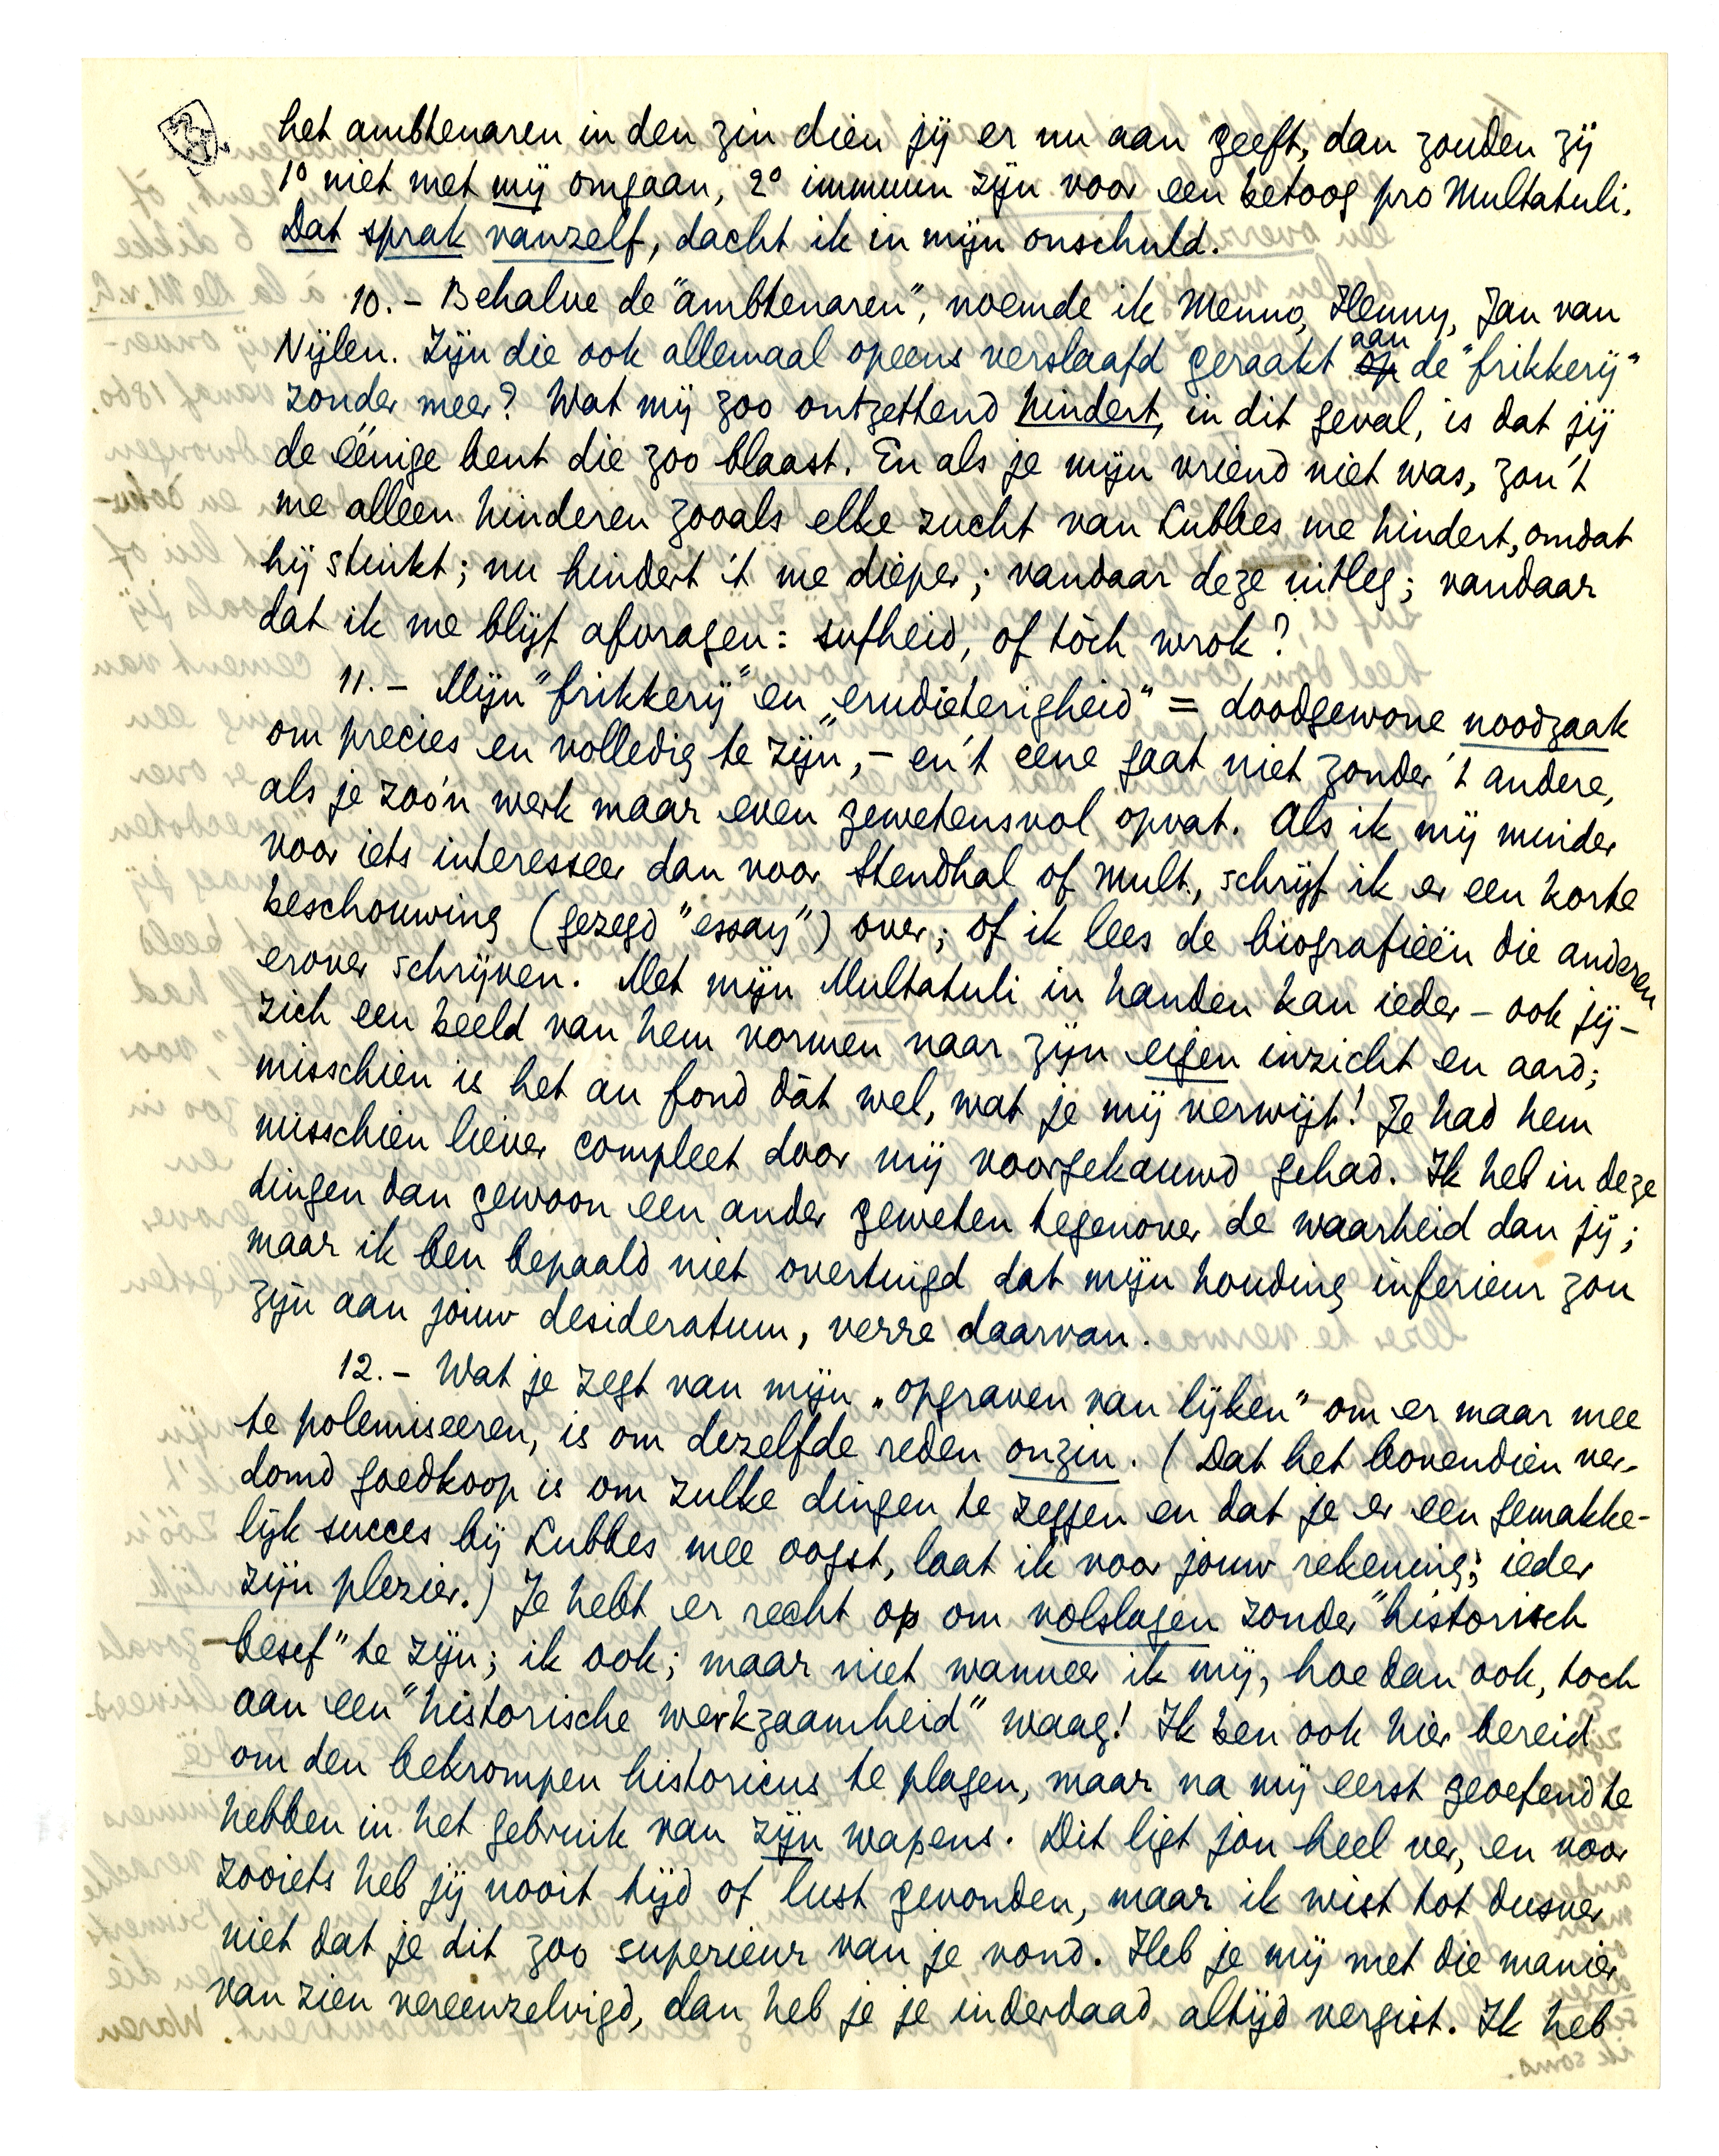 het ambtenaren in den zin dien jij er nu aan geeft, dan zouden zij
1º niet met mij omgaan, 2º immuun zijn voor een betoog pro Multatuli.
Dat sprak vanzelf, dacht ik in mijn onschuld.
10.- Behalve de "ambtenaren", noemde ik Menno, Henny, Jan van
Nijlen. Zijn die ook allemaal opeens verslaafd geraakt op aan de "frikkerij"
zonder meer? Wat mij zoo ontzettend hindert, in dit geval, is dat jij
de éénige bent die zoo blaast. En als je mijn vriend niet was, zou 't
me alleen hinderen zooals elke zucht van Lubbes me hindert, omdat
hij stinkt; nu hindert 't me dieper; vandaar deze uitleg; vandaar
dat ik me blijf afvragen: sufheid, of tòch wrok?
11.- Mijn "frikkerij" en "erudieterigheid" = doodgewone noodzaak
om precies en volledig te zijn, - en 't eene gaat niet zonder 't andere,
als je zoo'n werk maar even gewetensvol opvat. Als ik mij minder
voor iets interesseer dan voor Stendhal of Mult., schrijf ik er een korte
beschouwing (gezegd "essay") over; of ik lees de biografieën die anderen
erover schrijven. Met mijn Multatuli in handen kan ieder - ook jij -
zich een beeld van hem vormen naar zijn eigen inzicht en aard;
misschien is het au fond dàt wel, wat je mij verwijt! Je had hem
misschien liever compleet door mij voorgekauwd gehad. Ik heb in deze
dingen dan gewoon een ander geweten tegenover de waarheid dan jij;
maar ik ben bepaald niet overtuigd dat mijn houding inferieur zou
zijn aan jouw desideratum, verre daarvan.
12.- Wat je zegt van mijn „opgraven van lijken" om er maar mee
te polemiseeren, is om dezelfde reden onzin. (Dat het bovendien ver-
domd goedkoop is om zulke dingen te zeggen en dat je er een gemakke-
lijk succes bij Lubbes mee oogst, laat ik voor jouw rekening; ieder
zijn plezier.) Je hebt er recht op om volslagen zonder "historisch
besef" te zijn; ik ook; maar niet wanneer ik mij, hoe dan ook, toch
aan een "historische werkzaamheid" waag! Ik ben ook hier bereid
om den bekrompen historicus te plagen, maar na mij eerst geoefend te
hebben in het gebruik van zijn wapens. Dit ligt jou heel ver, en voor
zooiets heb jij nooit tijd of lust gevonden, maar ik wist tot dusver
niet dat je dit zoo superieur van je vond. Heb je mij met die manier
van zien vereenzelvigd, dan heb je je inderdaad altijd vergist. Ik heb